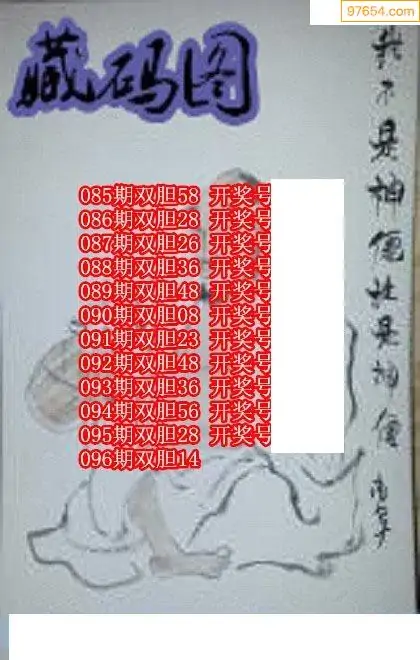 97654.com
藏码图
085期双胆58 开奖号
086期双胆28 开奖号
087期双胆26 开奖号
088期双胆36 开奖号
089期双胆48 开奖号
090期双胆08 开奖号
091期双胆23 开奖号
092期双胆48 开奖号
093期双胆36 开奖号
094期双胆56 开奖号
095期双胆28 开奖号
096期双胆14
不是神仙
是神仙